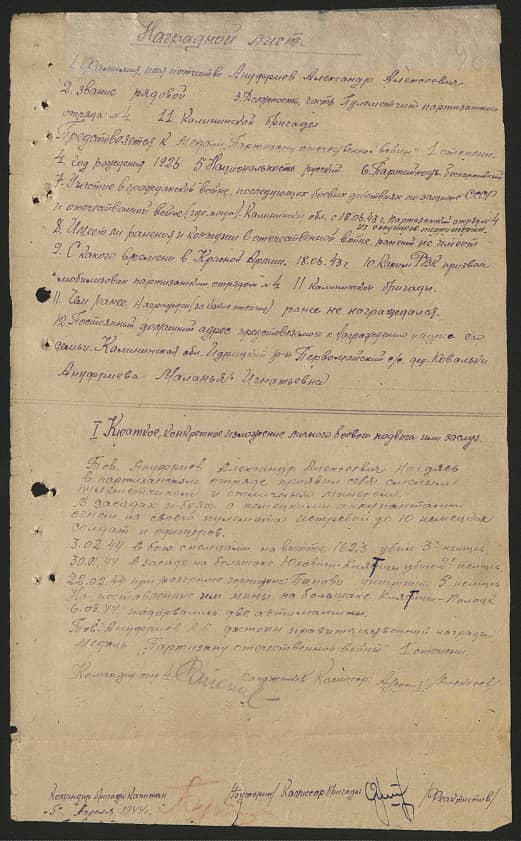 Наградной лист.
1. Фамилия, имя отчество Ануфриев Александр Алексеевич
2. звание рядовой 3. Должность, часть Пулеметчик партизанского
отряда №4 11 Калининской бригады
Представляется к Медали „Партизану отечественной войны" 1 степени.
4 год рождения 1926 5 Национальность русский 6. Партийность беспартийный
7. Участие в гражданской войне, последующих боевых действиях по защите СССР
и отечественной войне (где, когда) Калининская обл. с 18.06.43 г. партизанский отряд №4
8. Имеет ли ранения и контузии в отечественной войне. ранений не имеет
9. С какого времени в Красной Армии. 18.06.43 г. 10. Каким РВК призван
мобилизован партизанским отрядом №4 11 Калининской бригады.
11. Чем ранее награжден (за какие отличия) ранее не награждался.
12. Постоянный домашний адрес представляемого к награждению и адрес его
семьи. Калининская обл. Идрицкий р-н Первомайский с/с дер. Ковальки
Ануфриева Маланья Игнатьевна
I Краткое, конкретное изложение личного боевого подвига или заслуг.
Тов. Ануфриев Александр Алексеевич находясь
в партизанском отряде проявил себя смелым
пулеметчиком и отличным минером.
В засадах и боях с немецкими оккупантами
огнем из своего пулемета истребил до 10 немецких
солдат и офицеров.
3.02.44 в бою с немцами на высоте 162,3 убил 3 немца,
в засаде на большаке Юховичи-Клястицы убил немца
22.02.44 при разгроме гарнизона Паново уничтожил 5 немцев
На поставленные им мины на большаке Клястицы-Полоцк
6.03.44 подорвались две автомашины.
Тов. Ануфриев А.А. достоин правительственной награды
Медаль „Партизану отечественной войны" 1 степени.
Командир отр. 4 Комиссар: /Алексеев/
Командир бригады Капитан Комиссар бригады /Феоктистов/
Апрель 1944 г.